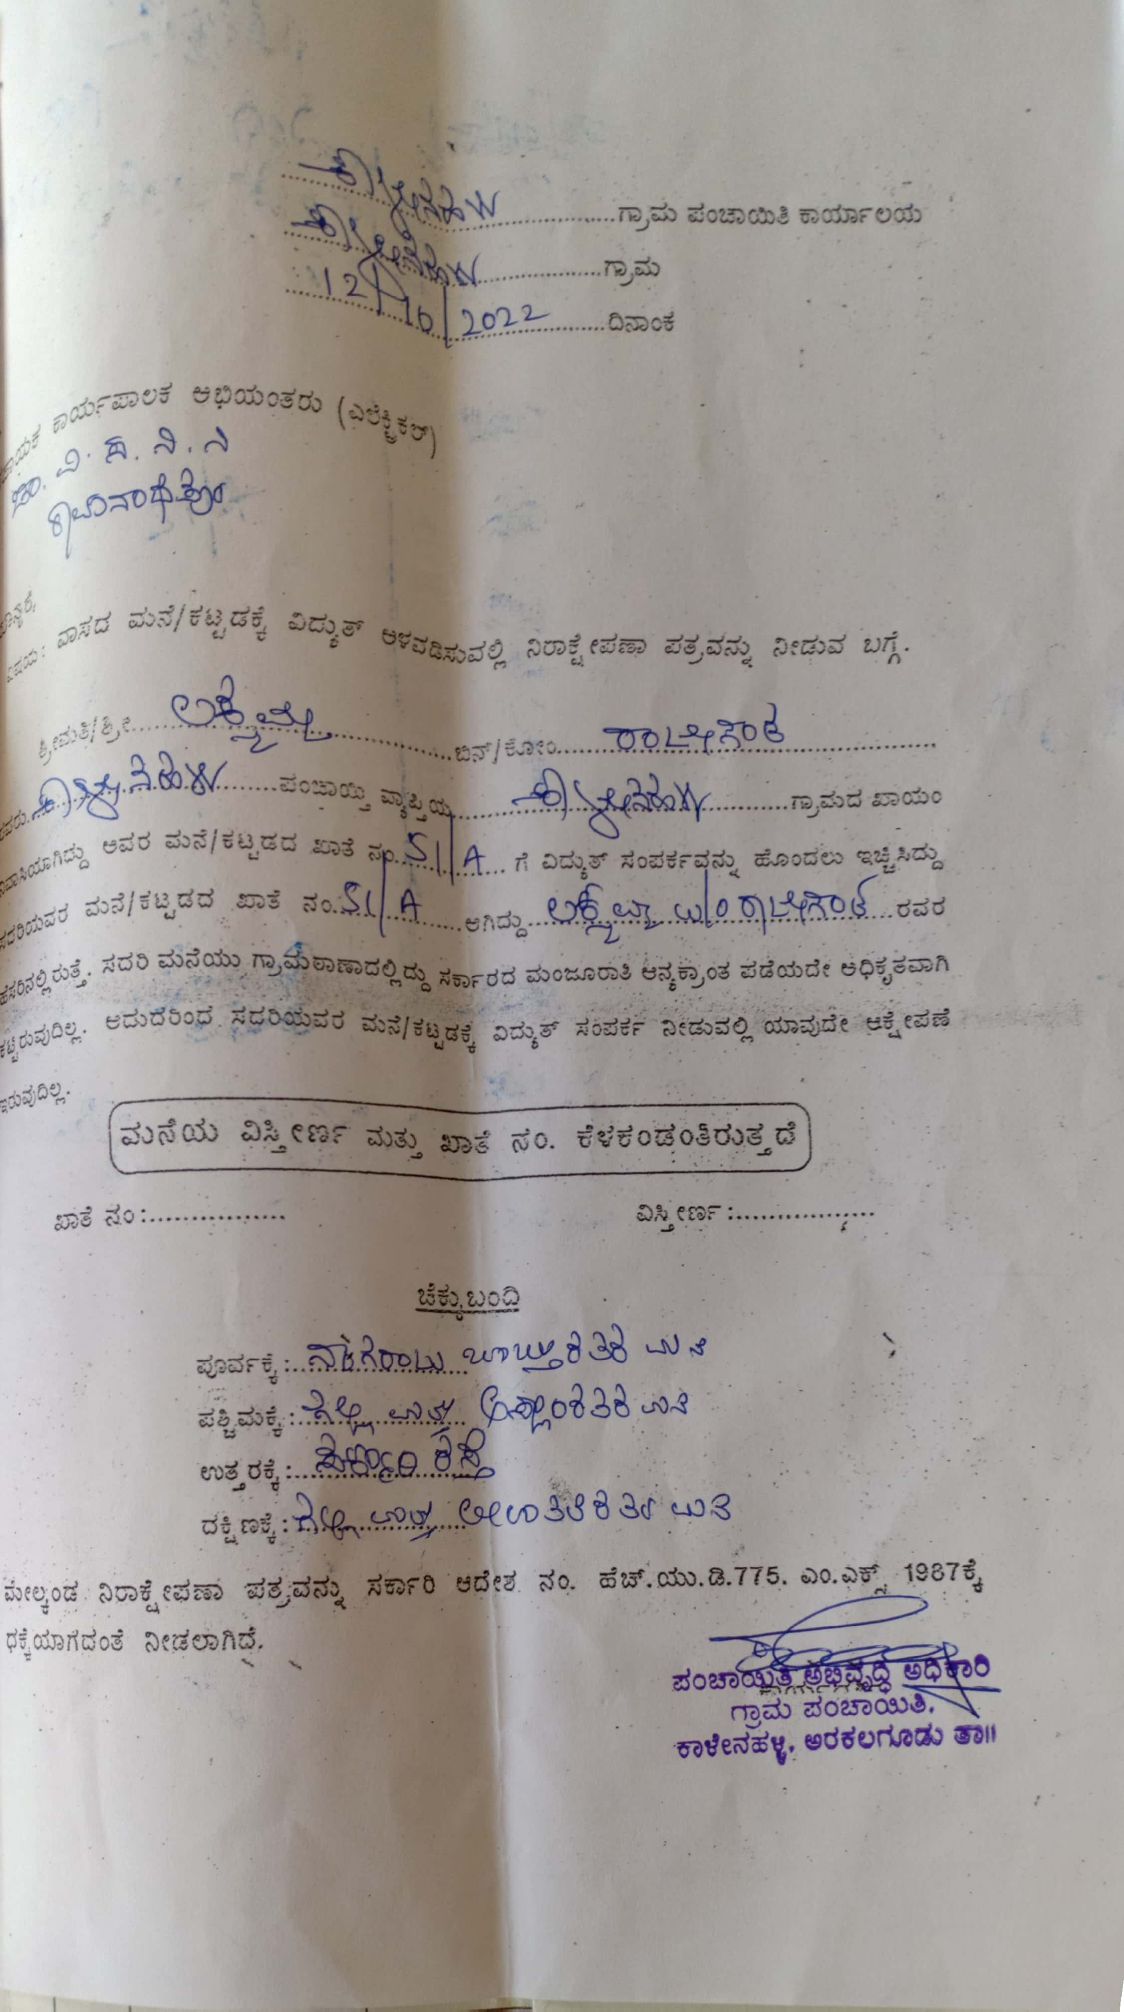 ಕಾಳೇನಹಳ್ಳಿ ಗ್ರಾಮ ಪಂಚಾಯಿತಿ ಕಾರ್ಯಾಲಯ
ಕಾಳೇನಹಳ್ಳಿ ಗ್ರಾಮ
12/10/2022 ದಿನಾಂಕ
ಕಾರ್ಯಪಾಲಕ ಅಭಿಯಂತರು (ಎಲೆಕ್ಟ್ರಿಕಲ್)
ವಿಷಯ: ವಾಸದ ಮನೆ/ಕಟ್ಟಡಕ್ಕೆ ವಿದ್ಯುತ್ ಅಳವಡಿಸುವಲ್ಲಿ ನಿರಾಕ್ಷೇಪಣಾ ಪತ್ರವನ್ನು ನೀಡುವ ಬಗ್ಗೆ.
ಶ್ರೀಮತಿ/ಶ್ರೀ ಲಕ್ಷ್ಮಮ್ಮ ಬಿನ್/ಕೋಂ ರಾಜೇಗೌಡ
ರವರು ಕಾಳೇನಹಳ್ಳಿ ಪಂಚಾಯ್ತಿ ವ್ಯಾಪ್ತಿಯ ಕಾಳೇನಹಳ್ಳಿ ಗ್ರಾಮದ ಖಾಯಂ
ನಿವಾಸಿಯಾಗಿದ್ದು ಅವರ ಮನೆ/ಕಟ್ಟಡದ ಖಾತೆ ನಂ. 51/A ಗೆ ವಿದ್ಯುತ್ ಸಂಪರ್ಕವನ್ನು ಹೊಂದಲು ಇಚ್ಛಿಸಿದ್ದು
ಸದರಿಯವರ ಮನೆ/ಕಟ್ಟಡದ ಖಾತೆ ನಂ. 51/A ಆಗಿದ್ದು ಲಕ್ಷ್ಮಮ್ಮ ರಾಜೇಗೌಡ ರವರ
ಹೆಸರಿನಲ್ಲಿರುತ್ತೆ. ಸದರಿ ಮನೆಯು ಗ್ರಾಮಠಾಣಾದಲ್ಲಿದ್ದು ಸರ್ಕಾರದ ಮಂಜೂರಾತಿ ಅನ್ಯಕ್ರಾಂತ ಪಡೆಯದೇ ಅಧಿಕೃತವಾಗಿ
ಕಟ್ಟಿರುವುದಿಲ್ಲ. ಆದುದರಿಂದ ಸದರಿಯವರ ಮನೆ/ಕಟ್ಟಡಕ್ಕೆ ವಿದ್ಯುತ್ ಸಂಪರ್ಕ ನೀಡುವಲ್ಲಿ ಯಾವುದೇ ಆಕ್ಷೇಪಣೆ
ಇರುವುದಿಲ್ಲ.
ಮನೆಯ ವಿಸ್ತೀರ್ಣ ಮತ್ತು ಖಾತೆ ನಂ. ಕೆಳಕಂಡಂತಿರುತ್ತದೆ
ಖಾತೆ ನಂ:................ ವಿಸ್ತೀರ್ಣ:................
ಚೆಕ್ಕುಬಂದಿ
ಪೂರ್ವಕ್ಕೆ: ಮನೆ
ಪಶ್ಚಿಮಕ್ಕೆ: ಗಲ್ಲಿ ಮತ್ತು ಮನೆ
ಉತ್ತರಕ್ಕೆ: ರಸ್ತೆ
ದಕ್ಷಿಣಕ್ಕೆ: ಗಲ್ಲಿ ಮತ್ತು ಮನೆ
ಮೇಲ್ಕಂಡ ನಿರಾಕ್ಷೇಪಣಾ ಪತ್ರವನ್ನು ಸರ್ಕಾರಿ ಆದೇಶ ನಂ. ಹೆಚ್.ಯು.ಡಿ.775. ಎಂ.ಎಕ್ಸ್ 1987ಕ್ಕೆ
ಧಕ್ಕೆಯಾಗದಂತೆ ನೀಡಲಾಗಿದೆ.
ಪಂಚಾಯಿತಿ ಅಭಿವೃದ್ಧಿ ಅಧಿಕಾರಿ
ಗ್ರಾಮ ಪಂಚಾಯಿತಿ.
ಕಾಳೇನಹಳ್ಳಿ, ಅರಕಲಗೂಡು ತಾ॥